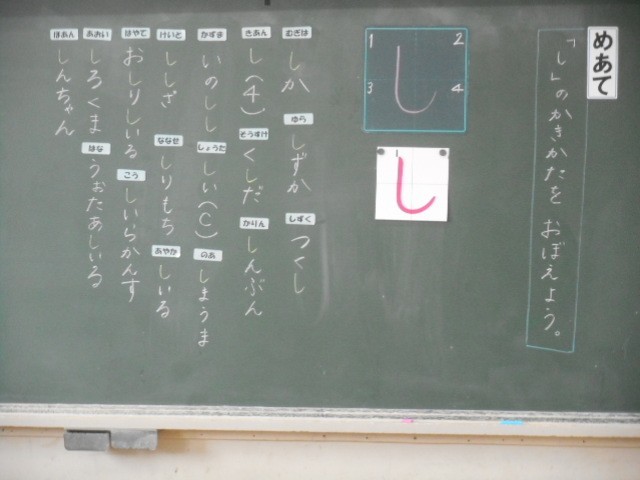 めあて
「し」のかきかたを おぼえよう。
1
2
3
4
し
1
し
むぎは
しか
ゆら
しずか
しずく
つくし
きあん
し(4)
そうすけ
くしだ
かりん
しんぶん
かずま
いのしし
しょうた
しい(C)
のあ
しまうま
けいと
ししざ
ななせ
しりもち
あやか
しいる
はやて
おしりしいる
こう
しいらかんす
あおい
しろくま
はな
うぉたあしいる
ほあん
しんちゃん